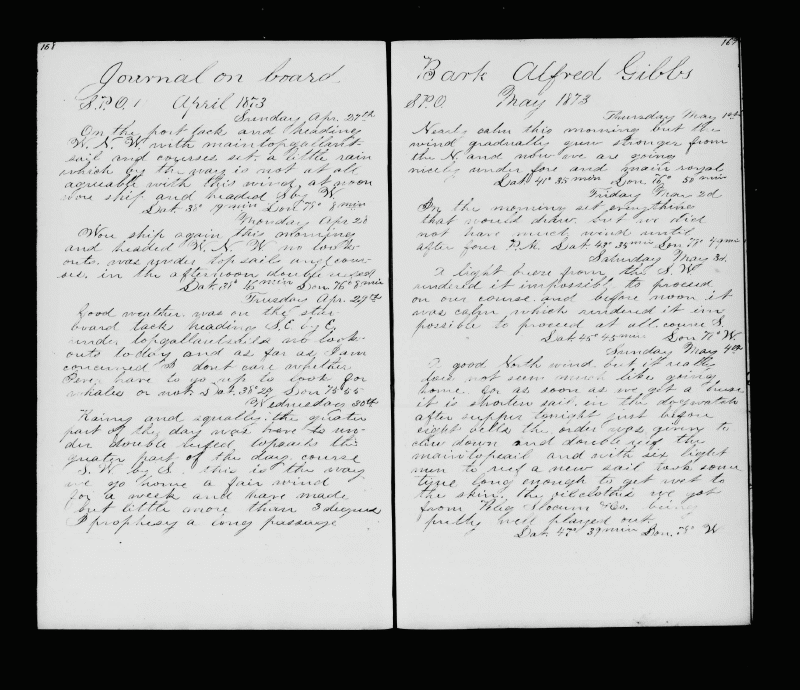 168
Journal on board
S.P.O. April 1873
Sunday Apr. 27th
On the port tack and heading
W. N. W. with maintopgallant
sail and courses set. a little rain
which by the way is not at all
agreeable with this wind, at noon
wore ship and headed S by W
Lat. 38° 9 min Lon. 75° 8 min
Monday Apr. 28
Wore ship again this morning
and headed W. N. W no look-
outs. was under topsails and cour-
ses. in the afternoon double reefed
Lat. 38° 16 min Lon. 76° 8 min
Tuesday Apr. 29th
Good weather. was on the star-
board tack heading S.E. by E.
under topgallantsails no look-
outs today and as far as I am
concerned I dont care whether
I ever have to go up to look for
whales or not. Lat. 38° 29 Lon 75° 55
Wednesday 30th
Rainy and squally. the greater
part of the day was under
double reefed topsails the
greater part of the day. course
S. W by S. this is the way
we go home a fair wind
for a week and have made
but little more than 3 degrees
I prophesy a long passage
169
Bark Alfred Gibbs
S.P.O. May 1873
Thursday May 1st
Nearly calm this morning but the
wind gradually grew stronger from
the N. and now we are going
nicely under fore and main royal
Lat 40° 35 min Lon. 76° 50 min
Friday May 2d
In the morning set everything
that would draw. but we did
not have much wind until
after four P.M. Lat. 42° 35 min Lon. 77°
Saturday May 3d.
A light breeze from the S. W
rendered it impossible to proceed
on our course and before noon it
was calm, which rendered it im
possible to proceed at all. course S.
Lat. 45° 45 min Lon 77° W.
Sunday May 4th
A good North wind. but it really
does not seem much like going
home. for as soon as we get a breeze
it is shorten sail. in the dogwatch
after supper tonight just before
eight bells the order was given to
clew down and double reef the
maintopsail and with six light
men to reef a new sail took some
time long enough to get wet to
the skin, the oilclothes we got
from Slocum & Co. being
pretty well played out.
Lat. 47° 39 min Lon. 78° W